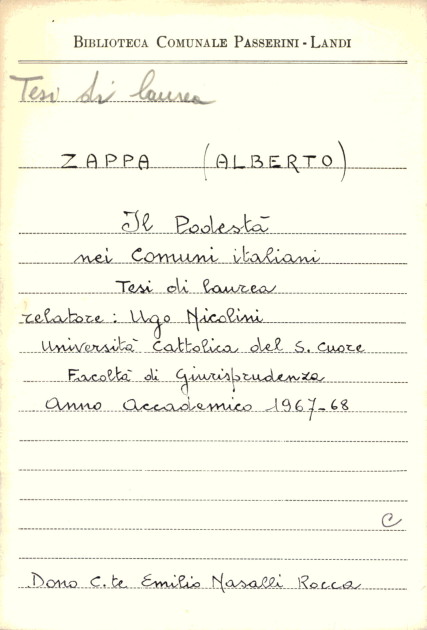 BIBLIOTECA COMUNALE PASSERINI-LANDI
Tesi di laurea
ZAPPA (ALBERTO)
Il Podestà
nei Comuni italiani
Tesi di laurea
relatore: Ugo Nicolini
Università Cattolica del S. Cuore
Facoltà di Giurisprudenza
Anno Accademico 1967-68
C
Dono C.te Emilio Nasalli Rocca